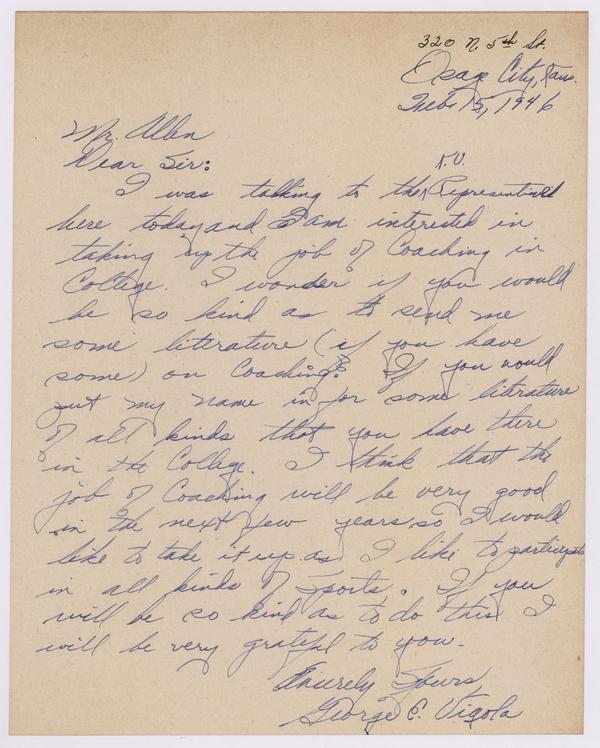 320 N. 5th St.
Osage City, Kans.
Feb. 15, 1946
Mr. Allen
Dear Sir:
K.U.
I was talking to the Representive
here today and I am interested in
taking up the job of Coaching in
College. I wonder if you would
be so kind as to send me
some literature (if you have
some) on Coaching? If you would
put my name in for some literature
of all kinds that you have there
in the College. I think that the
job of Coaching will be very good
in the next few years so I would
like to take it up as I like to participate
in all kinds of Sports. If you
will be so kind as to do this I
will be very grateful to you.
Sincerely Yours,
George E. Vigola